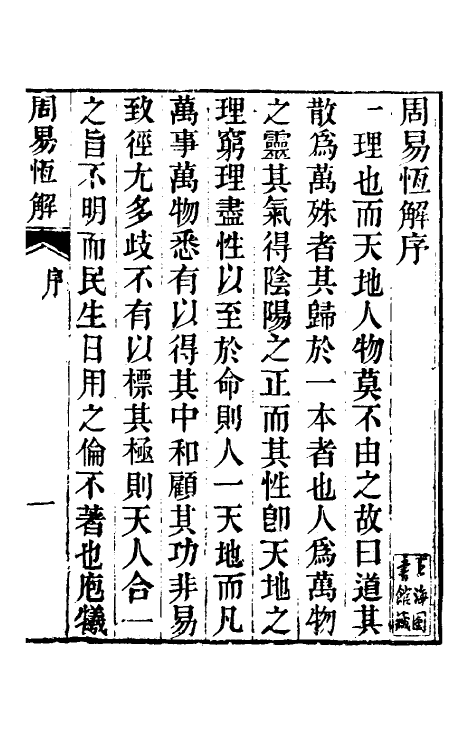 周易恆解序
一理也而天地人物莫不由之故曰道其
散爲萬殊者其歸於一本者也人爲萬物
之靈其氣得陰陽之正而其性卽天地之
理窮理盡性以至於命則人一天地而凡
萬事萬物悉有以得其中和顧其功非易
致徑尤多歧不有以標其極則天人合一
之旨不明而民生日用之倫不著也庖犧
周易恆解
序
一
海圖
書館藏